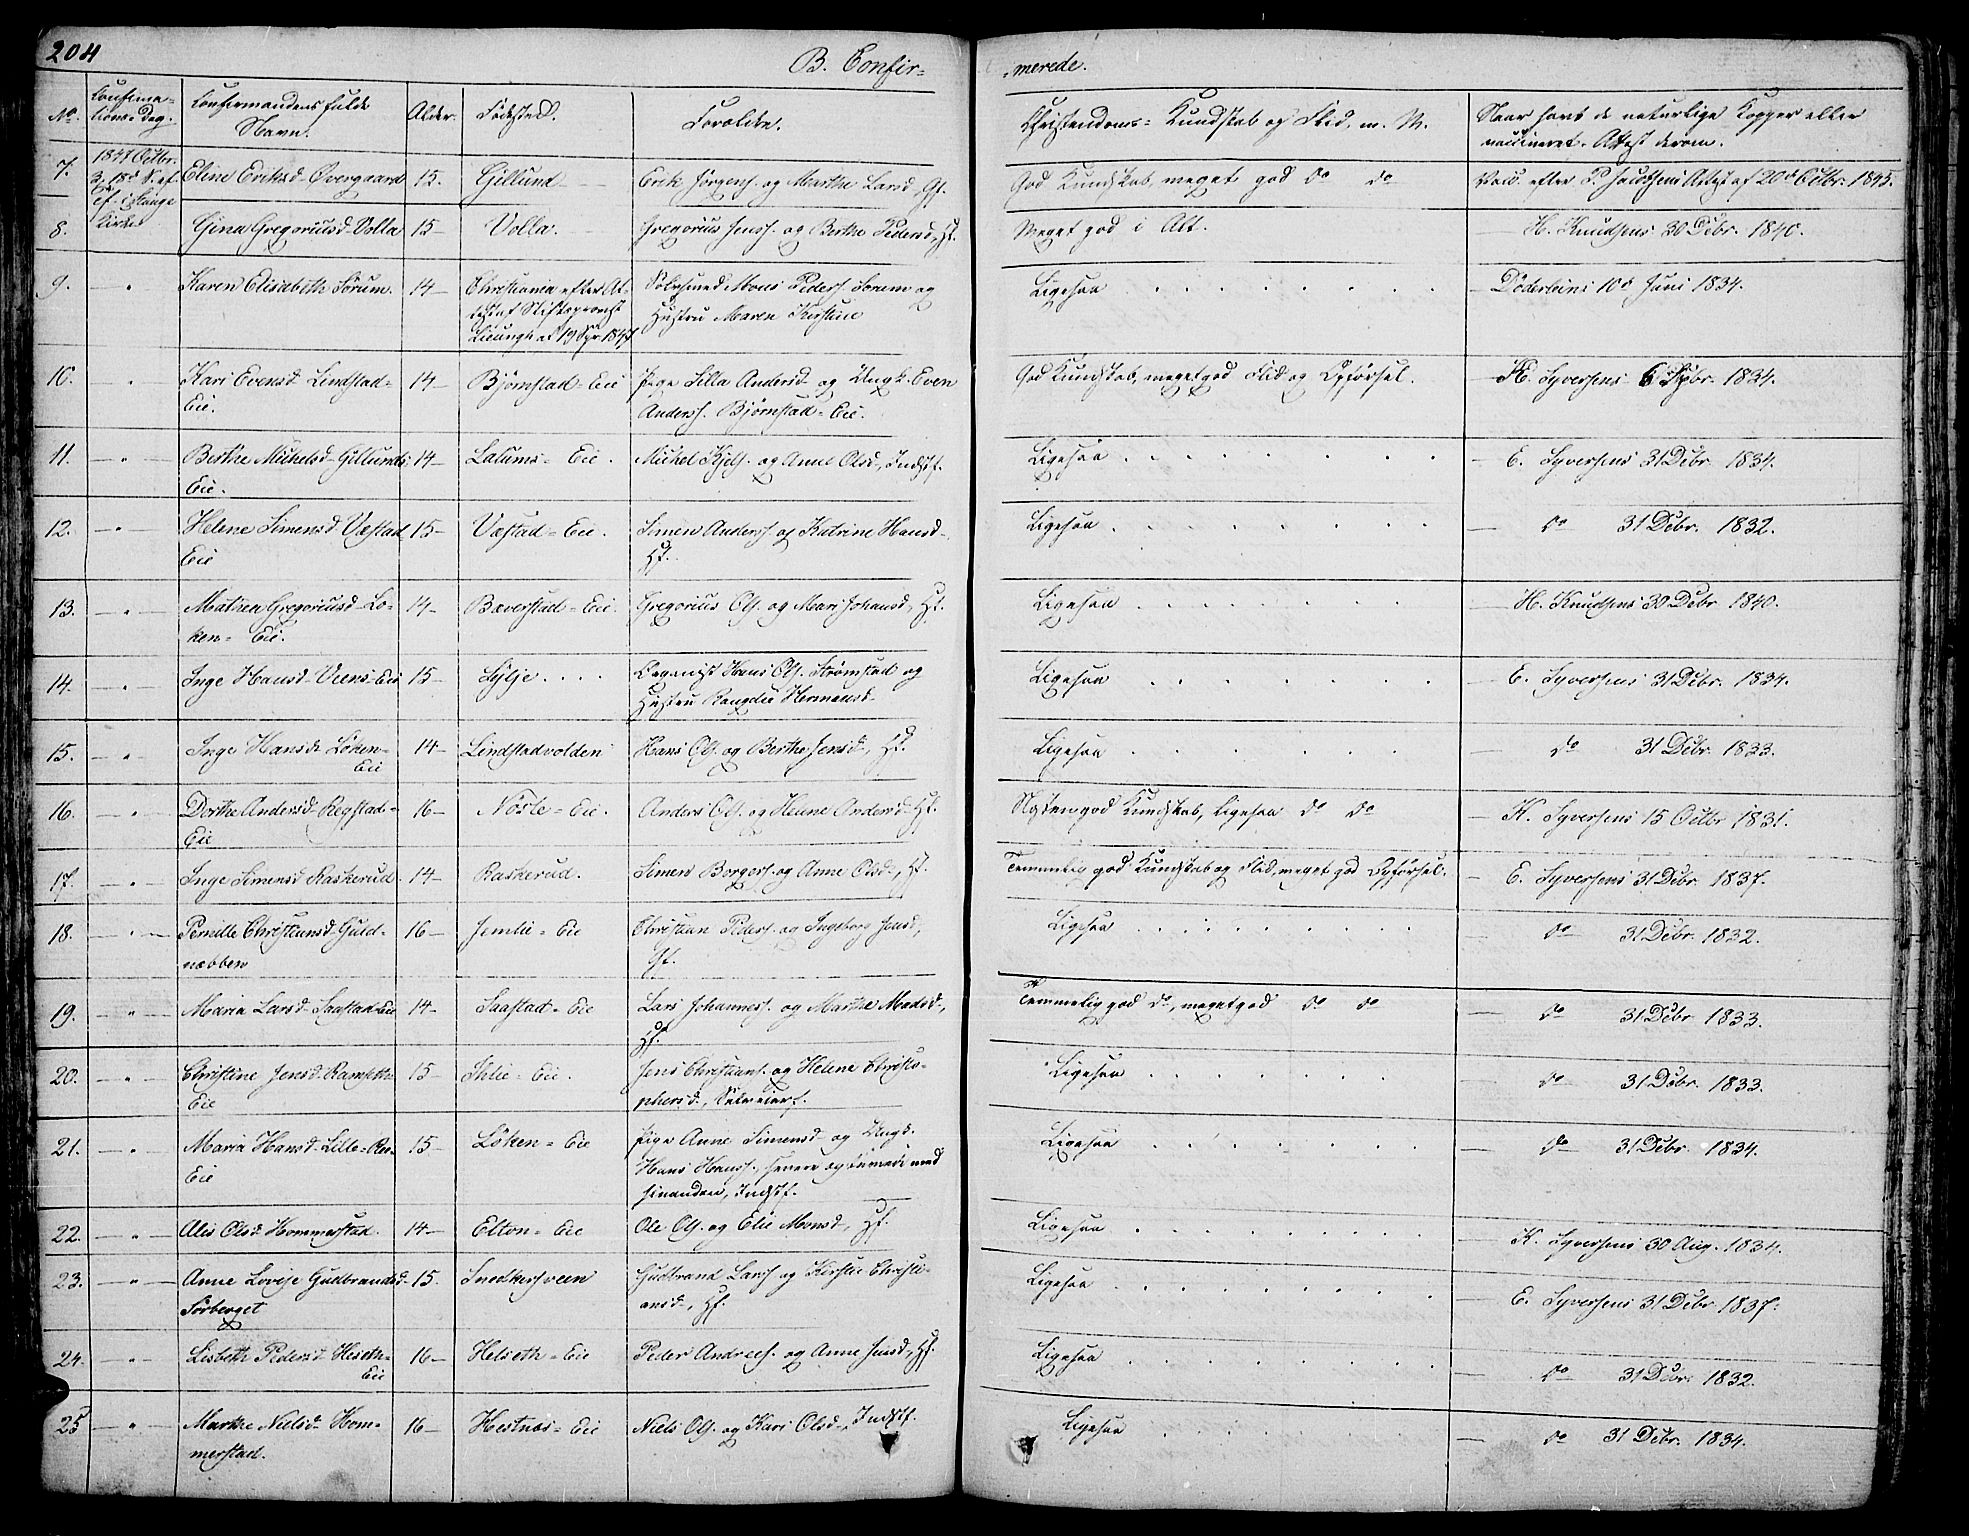 204
B. Confir-
-merede.
No.
Confirma-
tions-Dag.
Confirmandens fulde
Navn.
Alder.
Fødested.
Forældre.
Christendoms- Kundskab og Flid, m. M.
Naar havt de naturlige Kopper eller
vaccineret. Attest derom.
7.
1847 Octbr.
3. 18d S. ef.
ef. i Stange
Kirke
Eline Eriksd. Overgaard
15.
Gillund
Erik Jørgens. og Marthe Larsd., Gf.
God Kundskab, meget god do do
Vacc. efter P. Jacobsens Attest af 20d Octbr. 1845.
8.
Gina Gregoriusd. Volla
15-
Volla.
Gregorius Jenss. og Berthe Pedersd., Hf.
Meget god i Alt.
H. Knudsens 30 Debr. 1840.
9. "
Karen Elisabeth Sørum.
14-
Christiania efter At-
test af Stiftsprovst
af 19 Spr 1847
Sølvsmed Mons Peders. Sorum og
Hustru Maren Kirstine
Ligesaa
Döderleins 10d Juni 1834.
10. "
Kari Evensd. Lindstad-
Eie.
14-
Bjørnstad-Eie
Pige Silla Andersd. og Ungk. Even
Anderss. Bjørnstad-Eie.
God Kundskab, meget god Flid og Opførsel.
K. Syversens 6 Spbr. 1834.
11. "
Berthe Michelsd. Gillunds
Eie.
14-
Lalums-Eie.
Michel Kjels. og Anne Olsd., Indstf.
Ligesaa
E. Syversens 31 Debr. 1834.
12. "
Helene Simensd. Væstad
Eie
15-
Væstad-Eie.
Simen Anderss. og Katrine Hansd.,
Hf.
Ligesaa
do 31 Debr. 1832.
13. "
Mathea Gregoriusd. Lø-
ken- Eie.
14-
Bæverstad-Eie.
Gregorius Ols. og Mari Johansd., Hf.
Ligesaa
H. Knudsens 30 Debr 1840.
14. "
Inge Hansd. Veens-Eie
15-
Sylje
Organist Hans Ols. Strømstad og
Hustru Rangdie Hermansd.
Ligesaa
E. Syversens 31 Debr. 1834.
15. "
Inge Hansd. Løken-
Eie
14-
Lindstadvolden
Hans Ols. og Berthe Jensd., Hf.
Ligesaa
do 31 Debr. 1833.
16. "
Dorthe Andersd. Regstad-
Eie
16-
Nøsle-Eie.
Anders Ols. og Helene Andersd. Hf.
Næsten god Kundskab, Ligesaa do do
K. Syversens 15 Octbr 1831.
17. "
Inge Simensd. Raskerud.
14-
Raskerud.
Simen Borgers. og Anne Olsd., Hf.
Temmelig god Kundskab og Flid, meget god Opførsel.
E. Syversens 31 Debr. 1837.
18. "
Pernille Christiansd. Guld-
næbben
16-
Jemlie-Eie
Christian Peders. og Ingeborg Jensd.,
Gf.
Ligesaa
do 31 Debr. 1832.
19. "
Maria Larsd. Saastad-Eie
14-
Saastad-Eie
Lars Johanness. og Marthe Madsd.,
Hf.
Temmelig god do, meget god do do
do 31 Debr 1833.
20. "
Christine Jensd. Ramseth-
Eie
15-
Ihlie-Eie.
Jens Christians. og Helene Christo-
phersd., Selveierf.
Ligesaa
do 31 Debr. 1833.
21. "
Maria Hansd. Lille-Ree-
Eie
15-
Løken-Eie
Pige Anne Simensd. og Ungk.
Hans Hanss., senere med
hinanden, Indstf.
Ligesaa
do 31 Debr. 1834.
22. "
Alis Olsd. Hommerstad.
14-
Elton-Eie
Ole Ols. og Elie Monsd., Hf.
Ligesaa
K. Syversens 30 Aug. 1834.
23. "
Anne Lovise Gudbrandsd.
Sørberget
15.
Snedkersveen
Gudbrand Larss. og Kirstie Christi-
ansd., Hf.
Ligesaa
E. Syversens 31 Debr 1837.
24. "
Lisbeth Pedersd. Helseth-
Eie
16-
Helseth-Eie
Peder Andrees. og Anne Jensd., Hf.
Ligesaa
do 31 Debr. 1832.
25 "
Marthe Nielsd. Hom-
merstad.
16-
Hestnæs-Eie
Niels Ols. og Kari Olsd., Indstf.
Ligesaa
do 31 Debr. 1834.